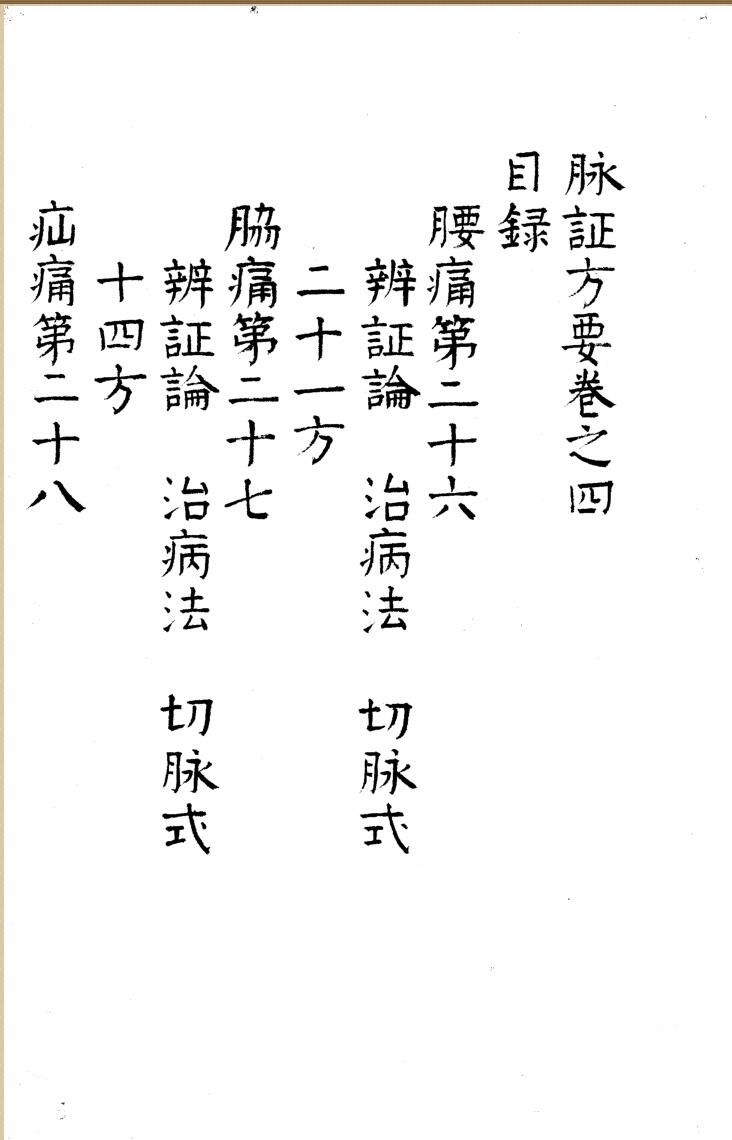 脉証方要卷之四
目録
腰痛第二十六
辨証論　治病法　切脉式
二十一方
脇痛第二十七
辨証論　治病法　切脉式
十四方
疝痛第二十八